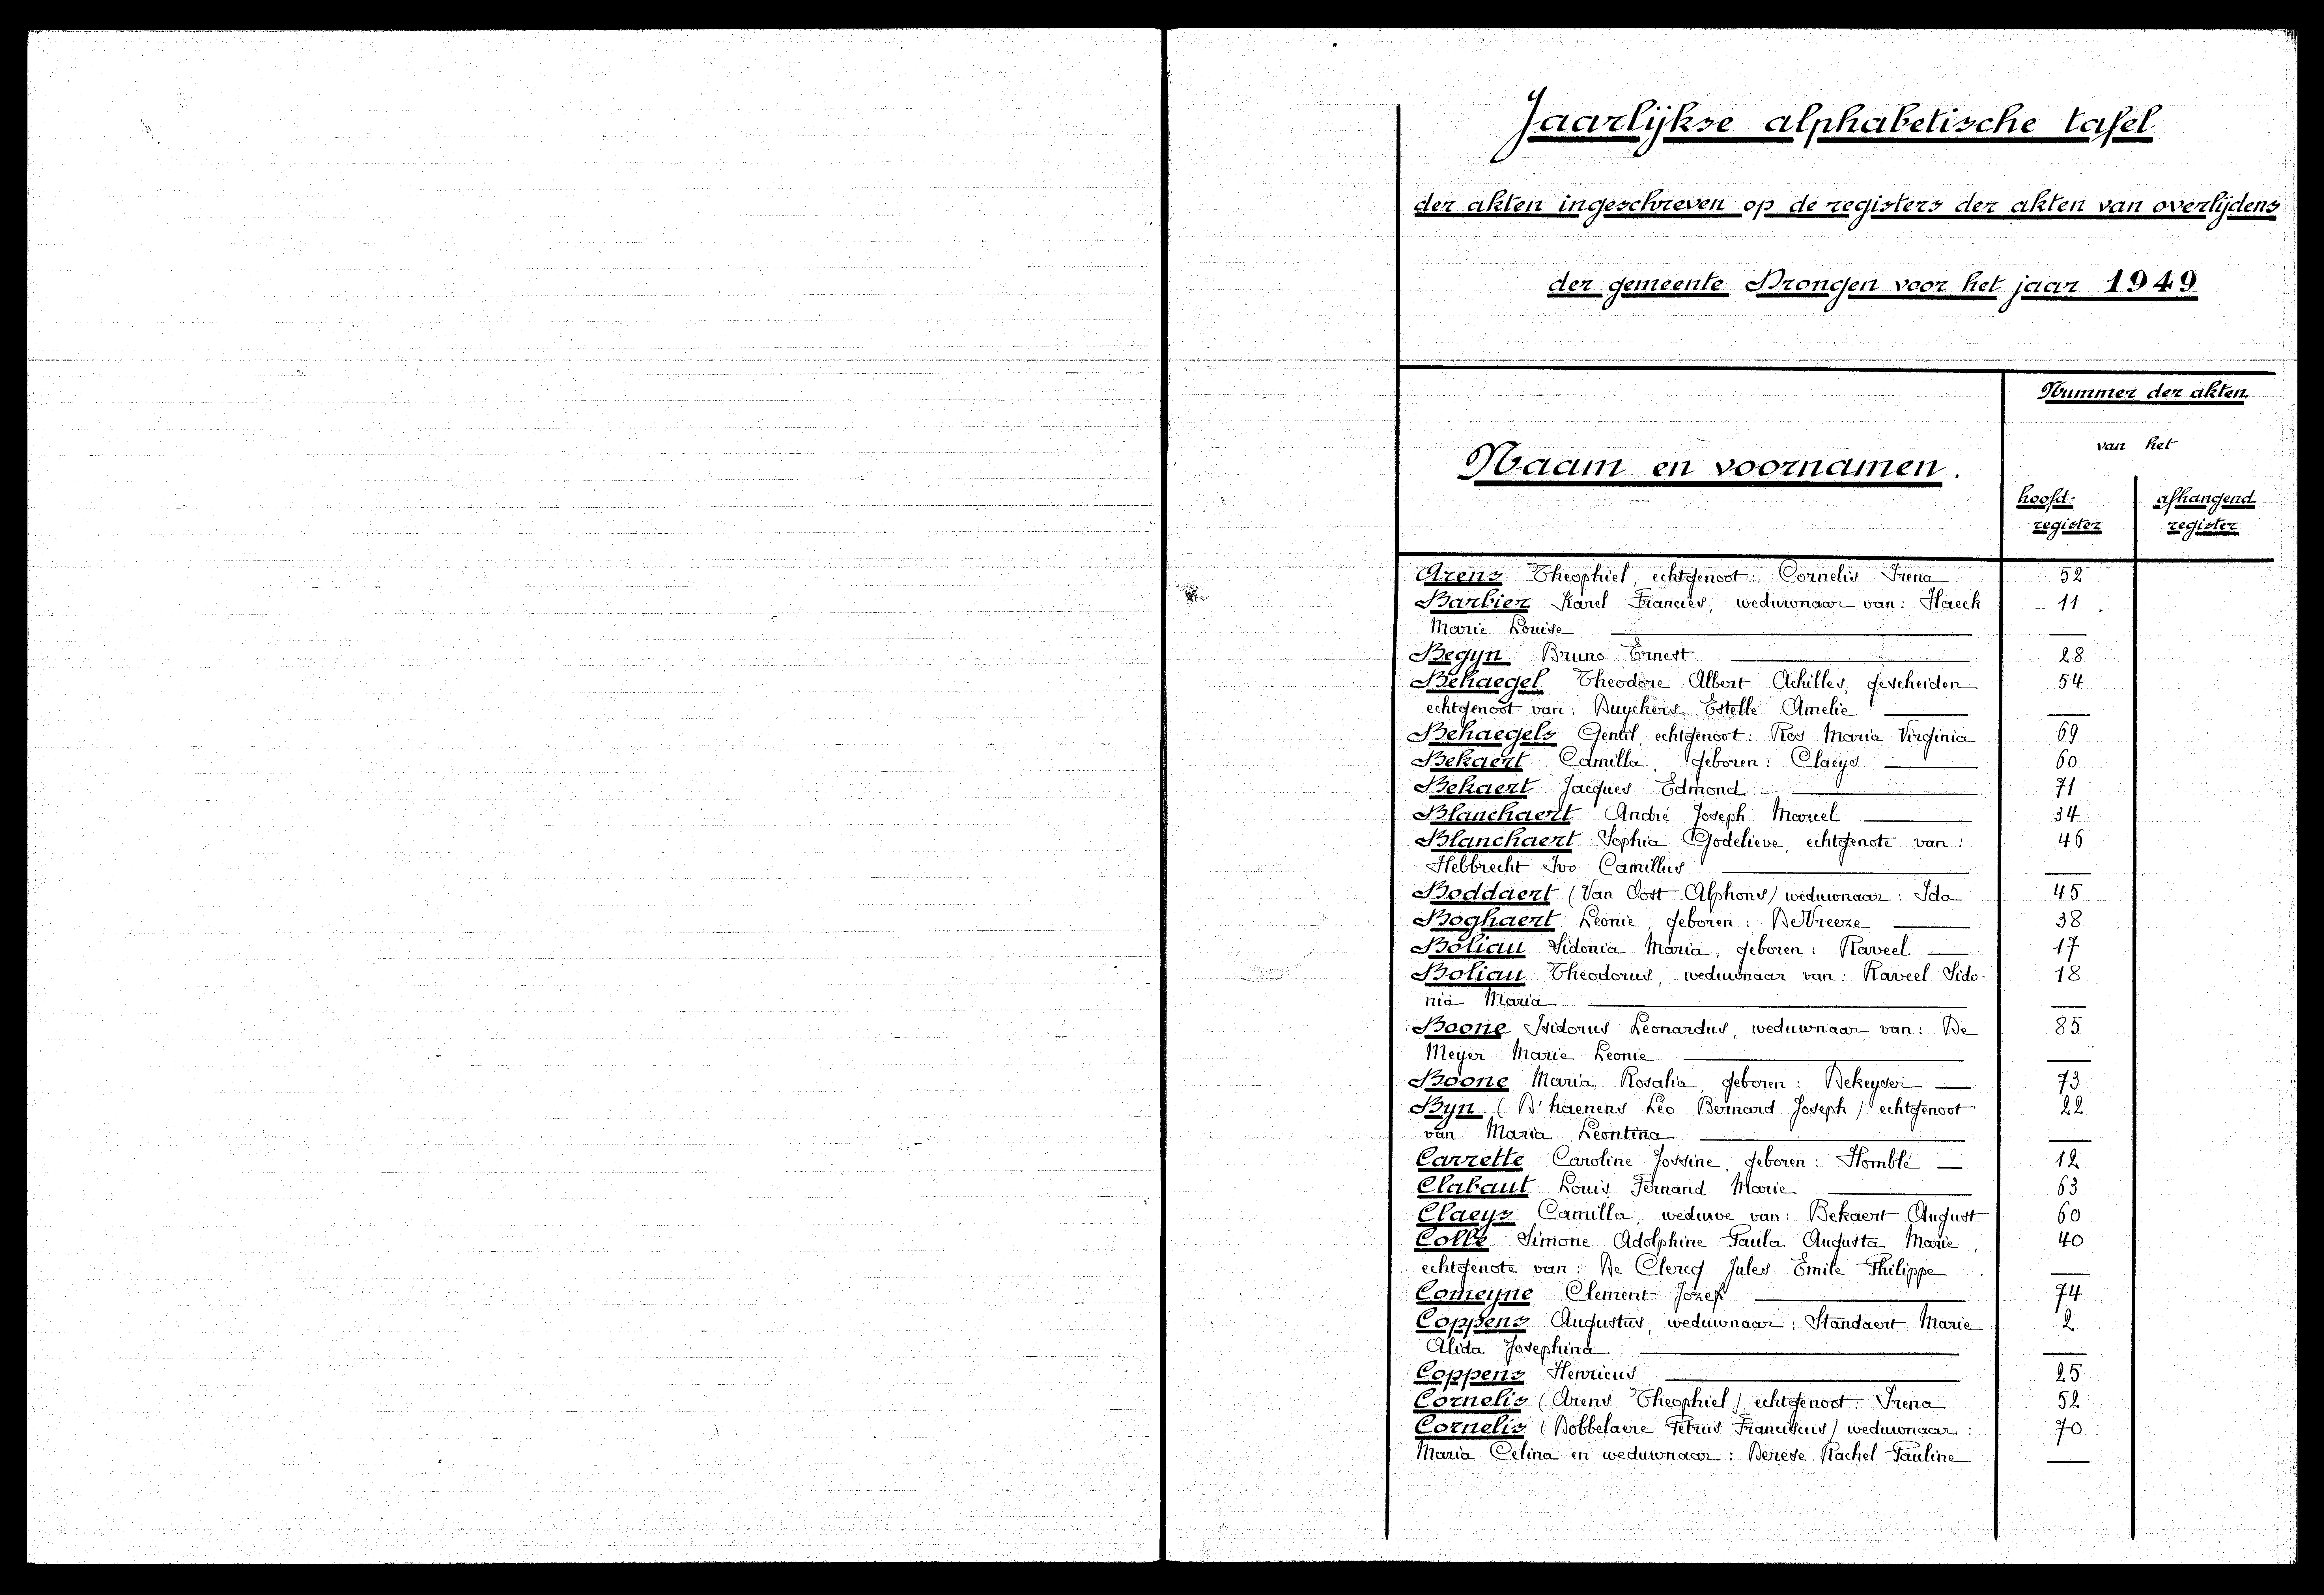 Jaarlijkse alphabetische tafel
der akten ingeschreven op de registers der akten van overlijdens
der gemeente Drongen voor het jaar 1949
Nummer der akten
van het
Naam en voornamen.
hoofd- afhangend
register register
Arens Theophiel, echtgenoot: Cornelis Irena 52
Barbier Karel Francies, weduwnaar van: Haeck 11
Marie Louise
Begyn Bruno Ernest 28
Behaegel Theodore Albert Achilles, gescheiden 54
echtgenoot van: Duyckers Estelle Amelie
Behaegels Gentil, echtgenoot: Ros Maria Virginia 69
Bekaert Camilla, geboren: Claeys 60
Bekaert Jacques Edmond 71
Blanchaert André Joseph Marcel 34
Blanchaert Sophia Godelieve, echtgenote van: 46
Hebbrecht Ivo Camillus
Boddaert (Van Oost Alphons) weduwnaar: Ida 45
Boghaert Leonie, geboren: De Vreeze 38
Boliau Sidonia Maria, geboren: Raveel 17
Boliau Theodorus, weduwnaar van: Raveel Sido- 18
nia Maria
Boone Isidorus Leonardus, weduwnaar van: De 85
Meyer Marie Leonie
Boone Maria Rosalia, geboren: Dekeyser 73
Byn (D'haenens Leo Bernard Joseph) echtgenoot 22
van Maria Leontina
Carrette Caroline Jossine, geboren: Homblé 12
Clabaut Louis Fernand Marie 63
Claeys Camilla, weduwe van: Bekaert August 60
Colle Simone Adolphine Paula Augusta Marie, 40
echtgenote van: De Clercq Jules Emile Philippe
Comeyne Clement Jozef 74
Coppens Augustus, weduwnaar: Standaert Marie 2
Alida Josephina
Coppens Henricus 25
Cornelis (Arens Theophiel) echtgenoot: Irena 52
Cornelis (Dobbelaere Petrus Franciscus) weduwnaar: 70
Maria Celina en weduwnaar: Derese Rachel Pauline